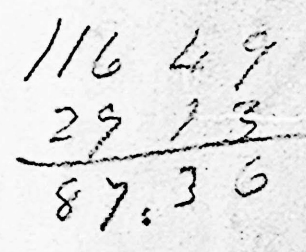 116 49
29 13
87.36